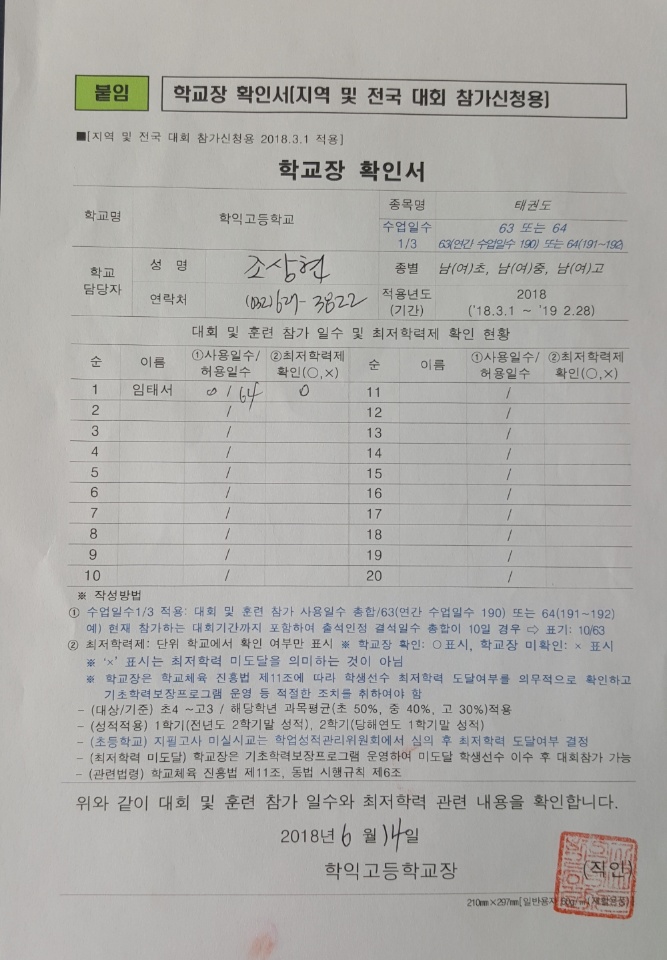 붙임
학교장 확인서(지역 및 전국 대회 참가신청용)
■[지역 및 전국 대회 참가신청용 2018.3.1 적용]
학교장 확인서
학교명 학익고등학교 종목명 태권도
수업일수 1/3 63 또는 64
63(연간 수업일수 190) 또는 64(191~192)
학교 담당자 성 명 조상현 종별 남(여)초, 남(여)중, 남(여)고
연락처 (032)627-3822 적용년도 (기간) 2018
('18.3.1 ~ '19 2.28)
대회 및 훈련 참가 일수 및 최저학력제 확인 현황
순 이름 ①사용일수/허용일수 ②최저학력제 확인(○,×) 순 이름 ①사용일수/허용일수 ②최저학력제 확인(○,×)
1 임태서 0 / 64 0 11 /
2 / 12 /
3 / 13 /
4 / 14 /
5 / 15 /
6 / 16 /
7 / 17 /
8 / 18 /
9 / 19 /
10 / 20 /
※ 작성방법
① 수업일수1/3 적용: 대회 및 훈련 참가 사용일수 총합/63(연간 수업일수 190) 또는 64(191~192)
예) 현재 참가하는 대회기간까지 포함하여 출석인정 결석일수 총합이 10일 경우 ⇨ 표기: 10/63
② 최저학력제: 단위 학교에서 확인 여부만 표시 ※ 학교장 확인: ○표시, 학교장 미확인: × 표시
※ '×' 표시는 최저학력 미도달을 의미하는 것이 아님
※ 학교장은 학교체육 진흥법 제11조에 따라 학생선수 최저학력 도달여부를 의무적으로 확인하고
기초학력보장프로그램 운영 등 적절한 조치를 취하여야 함
- (대상/기준) 초4 ~고3 / 해당학년 과목평균(초 50%, 중 40%, 고 30%)적용
- (성적적용) 1학기(전년도 2학기말 성적), 2학기(당해연도 1학기말 성적)
- (초등학교) 지필고사 미실시교는 학업성적관리위원회에서 심의 후 최저학력 도달여부 결정
- (최저학력 미도달) 학교장은 기초학력보장프로그램 운영하여 미도달 학생선수 이수 후 대회참가 가능
- (관련법령) 학교체육 진흥법 제11조, 동법 시행규칙 제6조
위와 같이 대회 및 훈련 참가 일수와 최저학력 관련 내용을 확인합니다.
2018년 6 월 14일
학익고등학교장 (직인)
210㎜×297㎜[일반용지 60g/㎡(재활용품)]